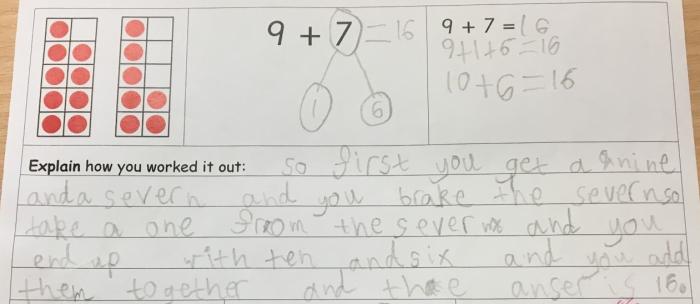 9 + 7 = 16
1 6
9 + 7 = 16
9+1+6=16
10+6=16
Explain how you worked it out: so first you get a nine
and a severn and you brake the severn so
take a one from the severn and you
end up with ten and six and you add
them together and the anser is 16.